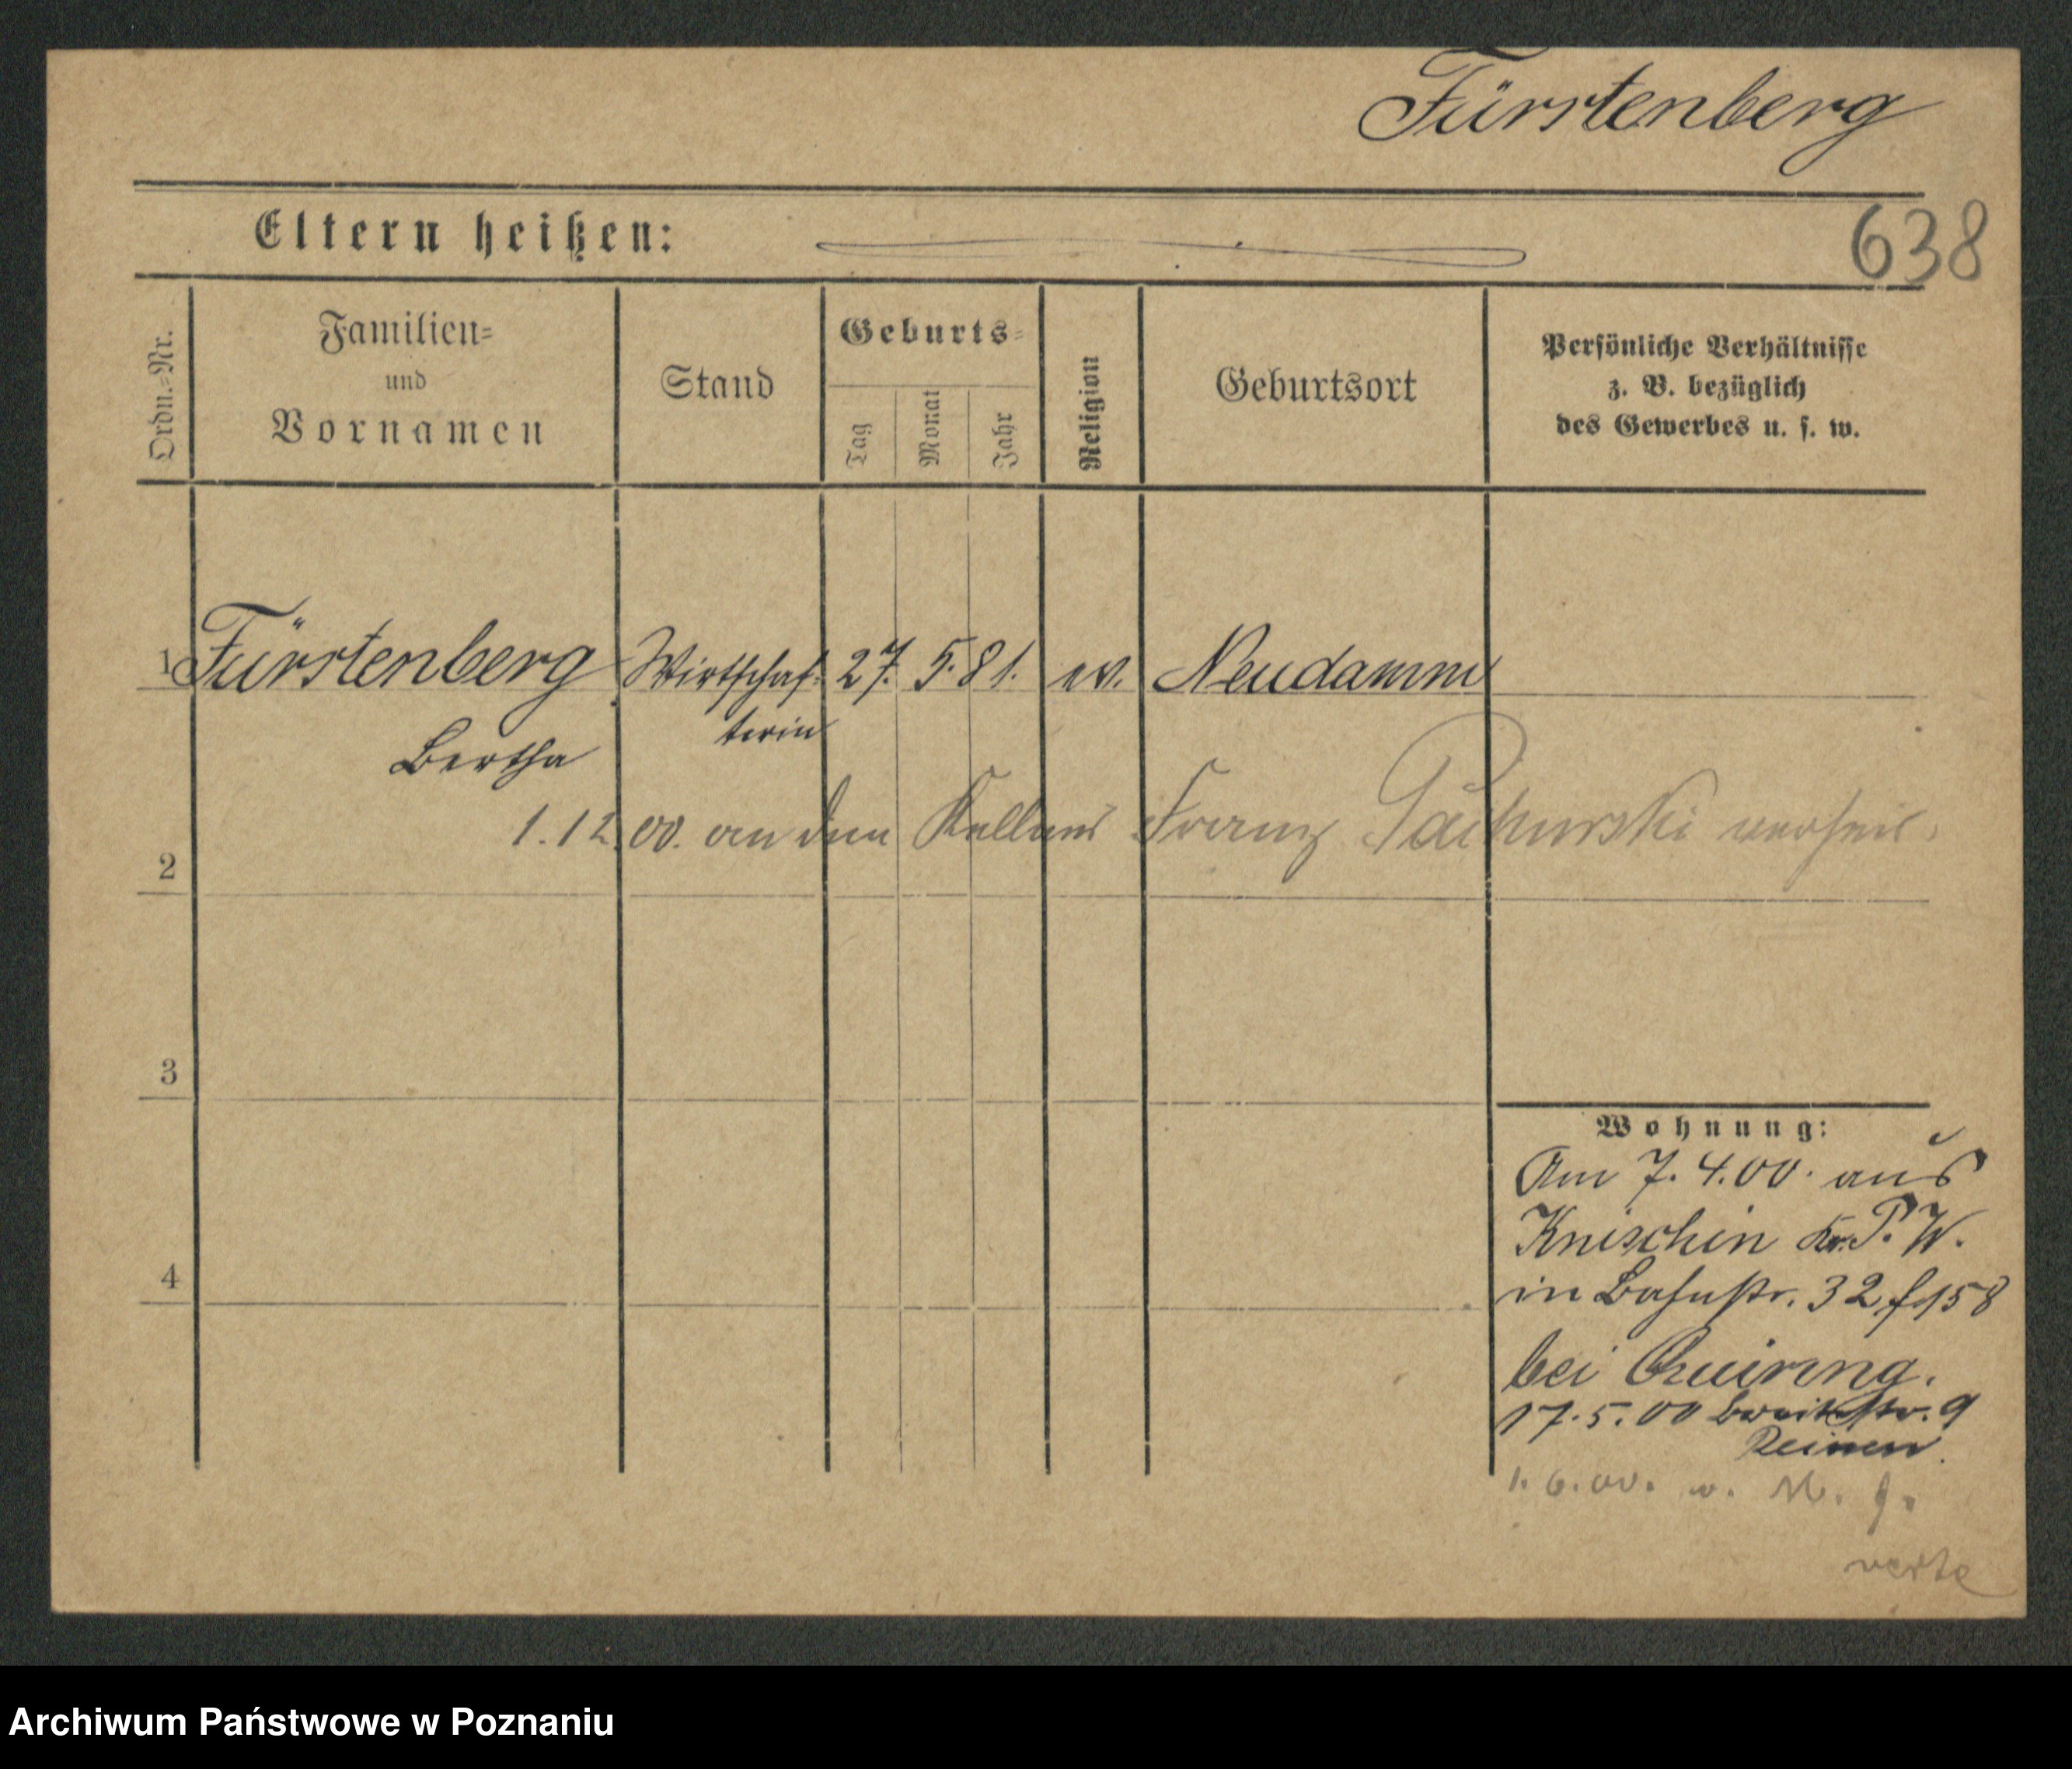 Fürstenberg
Eltern heißen:
638
Ordn.-Nr.
Familien-
und
Vornamen
Stand
Geburts-
Tag
Monat
Jahr
Religion
Geburtsort
Persönliche Verhältnisse
z. B. bezüglich
des Gewerbes u. s. w.
1 Fürstenberg Wirthschaf- 27. 5. 81. ev. Neudamm
Bertha terin
1.12.00. an den Kellner Franz verheir.
2
3
4
Wohnung:
Am 7.4.00. aus
Knischin Kr. P. W.
in Bahnstr. 32 158
bei Quiring.
17.5.00 Breitestr. 9
Reimer.
1.6.00. v. M. J.
verte
Archiwum Państwowe w Poznaniu